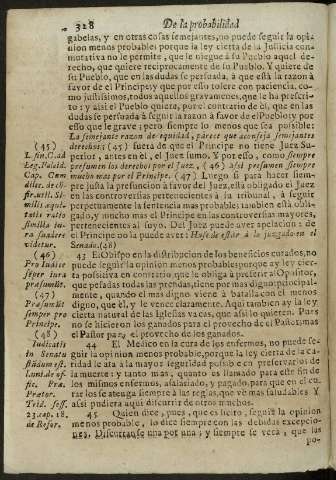 328
De la probabilidad
gabelas, y en otras cosas semejantes, no puede seguir la opi-
nion menos probable; porque la ley cierta de la Justicia con-
mutativa no le permite, que le niegue á su Pueblo aquel dere-
cho, que quiere reciprocamente de su Pueblo. Y quiere de
su Pueblo, que en las dudas se persuada, à que està la razon à
favor de el Principe; y que por esso tolere con paciencia, co-
mo justissimos, todos aquellos gravamenes, que le ha prescri-
to: y assi el Pueblo quiere, por el contrario de èl, que en las
dudas se persuada à seguir la razon à favor de el Pueblo; y por
esso que le grave; pero siempre lo menos que sea posible:
La semejante razon de equidad, parece que aconseja semejantes
derechos; (45) fuera de que el Principe no tiene Juez Su-
perior, antes en èl, es el Juez sumo. Y por esso, como siempre
presumen los derechos por el Juez, (46) assi presumen siempre
mucho mas por el Principe. (47) Luego si para hacer siem-
pre justa la presuncion à favor del Juez, està obligado el Juez
en las controversias pertenecientes à la tribunal, à seguir
perpetuamente la sentencia mas probable; tambien està obli-
gado, y mucho mas el Principe en las controversias mayores,
pertenecientes al suyo. Del Juez puede aver apelacion: de
Principe no la puede aver: Hase de estàr à lo juzgado en el
Senado. (48)
43 El Obispo en la distribucion de los beneficios curados, no
puede seguir la opinion menos probable; porque ay ley cier-
ta positiva en contrario, que le obliga à preferir al Opositor,
que pesadas todas las prendas, tiene por mas digno: principal-
mente, quando el mas digno viene à batalla con el menos
digno, que èl, y le vence claramente. Aqui tambien ay la ley
cierta natural de las Iglesias vacas, que assi lo quieren. Pues
no se hicieron los ganados para el provecho de el Pastor; mas
el Pastor para el provecho de los ganados.
44 El Medico en la cura de los enfermos, no puede se-
guir la opinion menos probable, porque la ley cierta de la ca-
ridad le ata à la mayor seguridad posible en preservarlos de
la muerte: y tanto mas, quanto es llamado para este fin de
los mismos enfermos, assalariado, y pagado, para que en el cu-
rar los se atenga siempre à las reglas, que ve mas saludables. Y
assi pudiera aqui discurrir de otros muchos.
45 Quien dice, pues, que es licito, seguir la opinion
menos probable, lo dice siempre con las debidas excepcio-
nes. Discurranse una por una; y siempre se verà, que las
po-
(45)
L. fin. C. ad
Leg. Falcid.
Cap. Cum
dilec. de cõ-
fir. util. Si-
milis æqui-
tatis ratio
similia iu-
ra suadere
videtur.
(46)
Pro Iudice
semper iura
præsumunt.
(47)
Præsumitur
semper pro
Principe.
(48)
Iudicatis
in Senatu
standum est.
de of-
fic. Præ.
Prætor.
Trid. sess.
23. cap. 18.
de Refor.